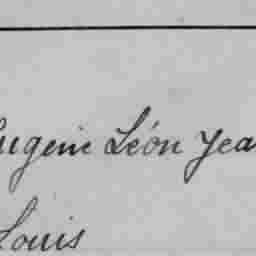 Eugène Léon Jea
Louis